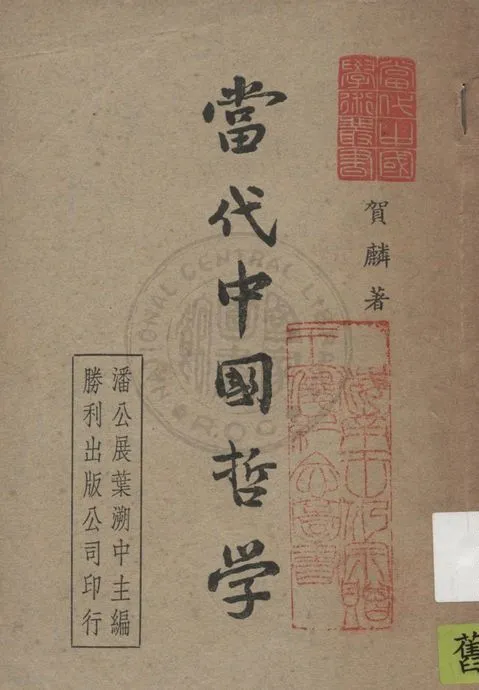 當代中國
學術叢書
賀麟著
當代中國哲学
潘公展葉溯中主編
勝利出版公司印行
NATIONAL CENTRAL
R.O.C.
舊